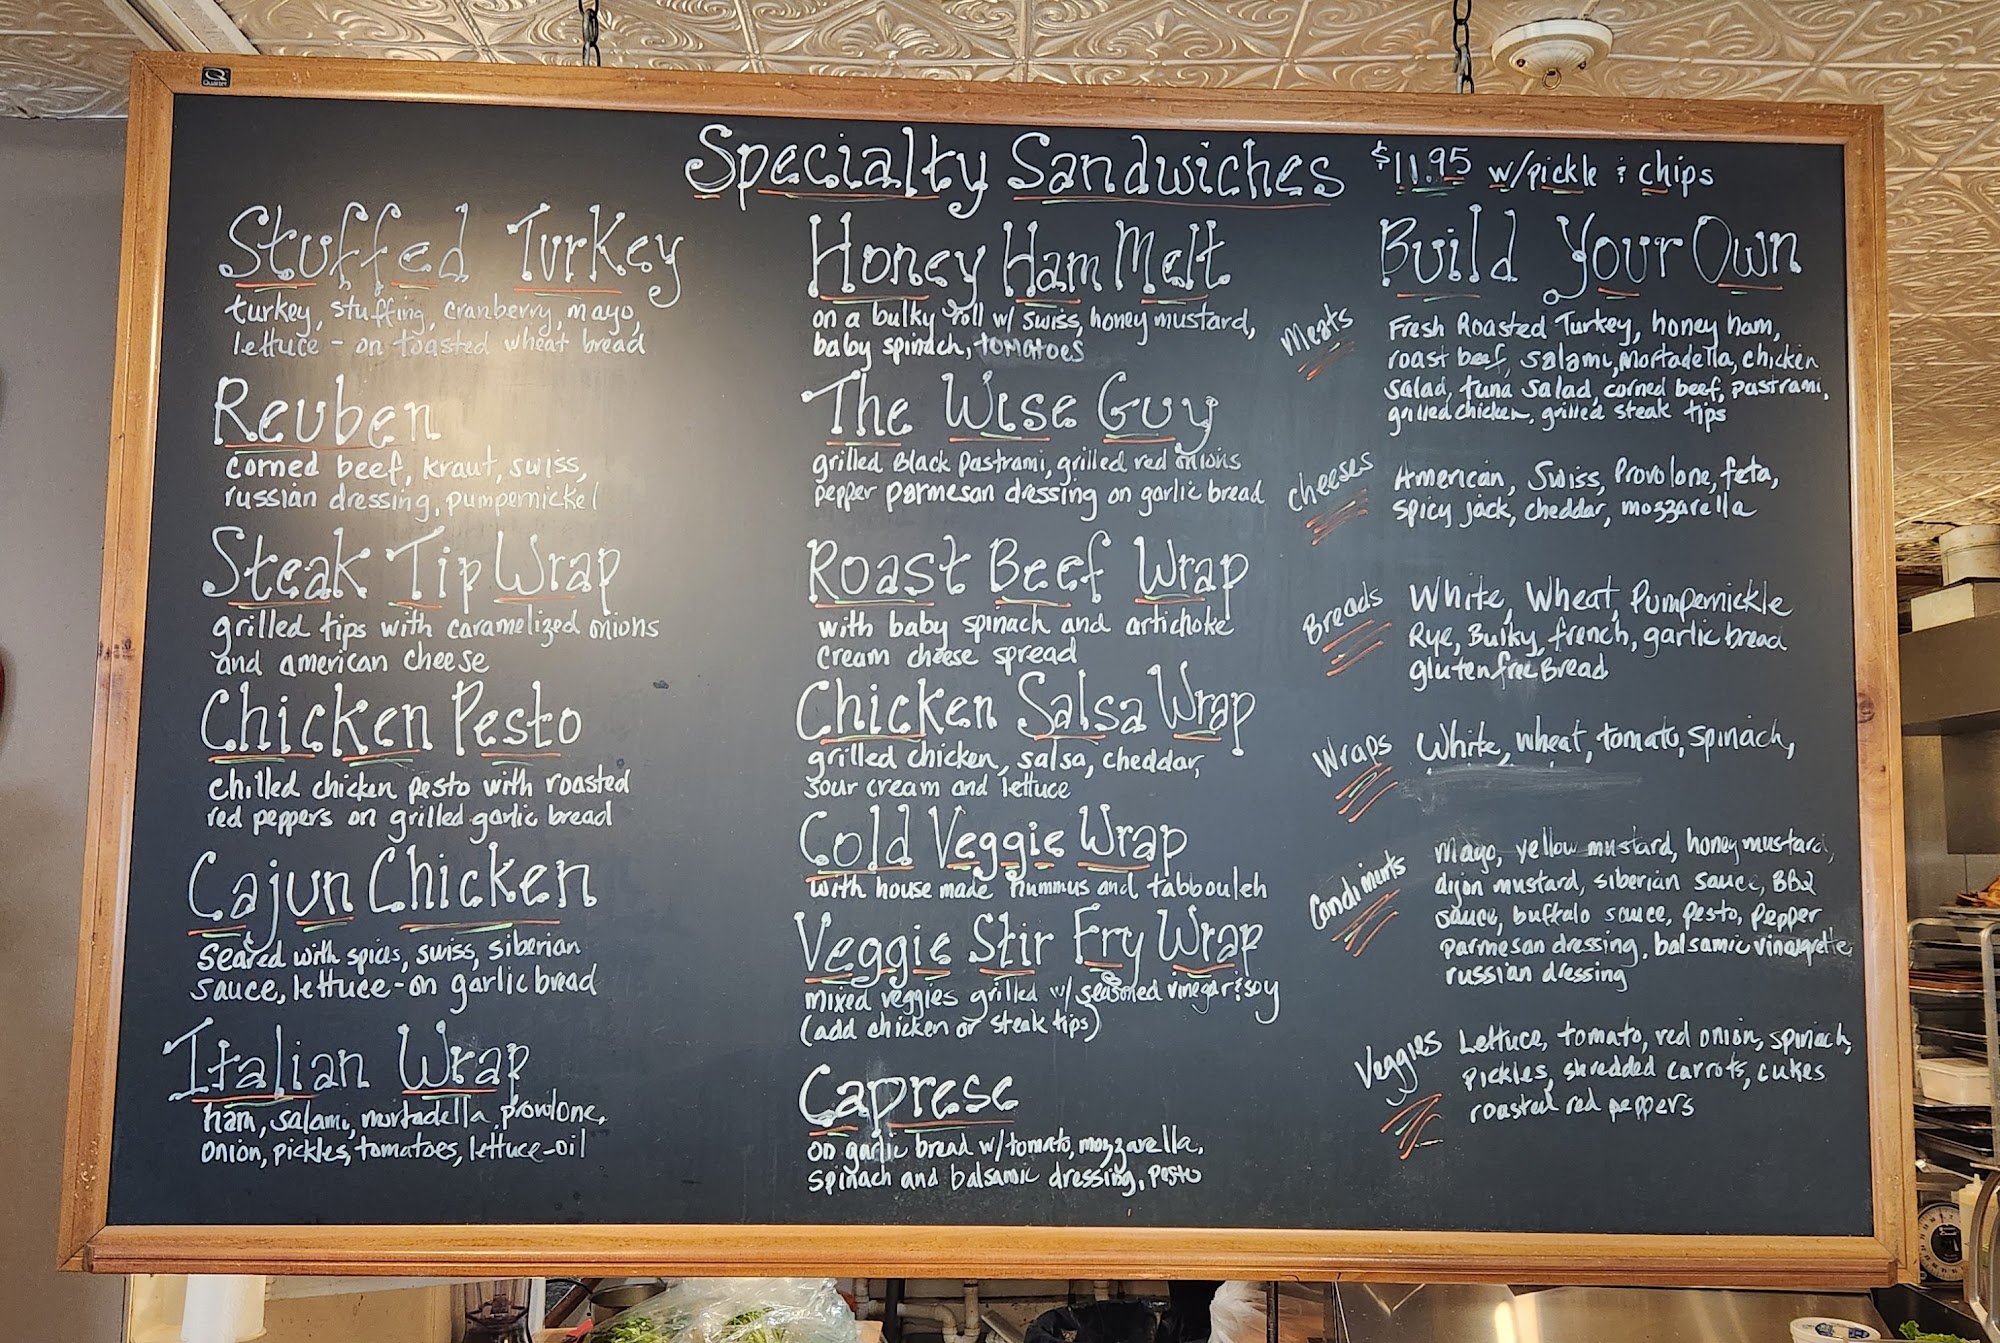 Quartet
Specialty Sandwiches $11.95 w/pickle & chips
Stuffed Turkey
turkey, stuffing, cranberry, mayo,
lettuce - on toasted wheat bread
Reuben
corned beef, kraut, swiss,
russian dressing, pumpernickel
Steak Tip Wrap
grilled tips with caramelized onions
and american cheese
Chicken Pesto
chilled chicken pesto with roasted
red peppers on grilled garlic bread
Cajun Chicken
seared with spices, swiss, siberian
sauce, lettuce - on garlic bread
Italian Wrap
ham, salami, mortadella, provolone,
onion, pickles, tomatoes, lettuce - oil
Honey Ham Melt
on a bulky roll w/ swiss, honey mustard,
baby spinach, tomatoes
The Wise Guy
grilled Black Pastrami, grilled red onions
pepper parmesan dressing on garlic bread
Roast Beef Wrap
with baby spinach and artichoke
cream cheese spread
Chicken Salsa Wrap
grilled chicken, salsa, cheddar,
sour cream and lettuce
Cold Veggie Wrap
with house made hummus and tabbouleh
Veggie Stir Fry Wrap
mixed veggies grilled w/ seasoned vinegar & soy
(add chicken or steak tips)
Caprese
on garlic bread w/ tomato, mozzarella,
spinach and balsamic dressing, pesto
Build Your Own
Meats
Fresh Roasted Turkey, honey ham,
roast beef, salami, Mortadella, chicken
salad, tuna salad, corned beef, pastrami,
grilled chicken, grilled steak tips
Cheeses
American, Swiss, Provolone, feta,
spicy jack, cheddar, mozzarella
Breads
White, Wheat, Pumpernickle
Rye, Bulky, french, garlic bread
gluten free Bread
Wraps
White, wheat, tomato, spinach,
Condiments
Mayo, yellow mustard, honey mustard,
dijon mustard, siberian sauce, BBQ
sauce, buffalo sauce, pesto, pepper
parmesan dressing, balsamic vinaigrette
russian dressing
Veggies
Lettuce, tomato, red onion, spinach,
pickles, shredded carrots, cukes
roasted red peppers